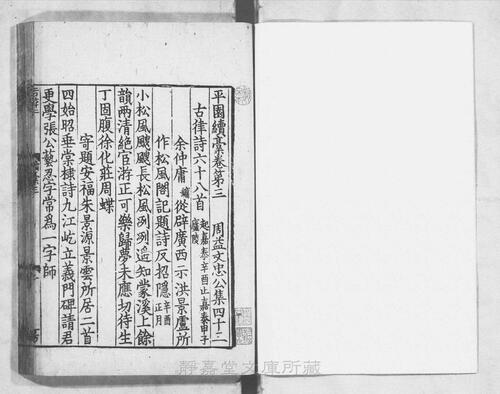 平園續藁卷第三 周益文忠公集四十三
古律詩六十八首 起嘉泰辛酉止嘉泰甲子
廬陵
余仲庸 鏞 從辟廣西示洪景盧所
作松風閣記題詩反招隱 辛酉
正月
小松風颸颸長松風冽冽遥知蒙溪上餘
韻兩清絶官游正可樂歸夢未應切待生
丁固腹徐化莊周蝶
寄題安福朱景源景雲所居二首
四始昭垂棠棣詩九江屹立義門碑請君
更學張公藝忍字常爲一字師
靜嘉堂文庫所藏